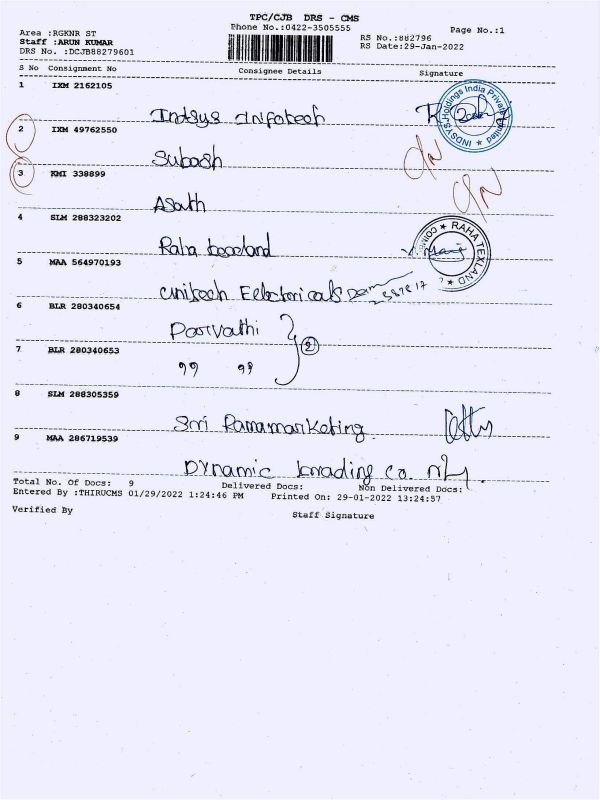 TPC/CJB DRS - CMS
Phone No.:0422-3505555
Page No.:1
Area :RGKNR ST
Staff :ARUN KUMAR
DRS No. :DCJB88279601
RS No.:882796
RS Date:29-Jan-2022
S No Consignment No Consignee Details Signature
1 IXM 2162105
Indsys Infotech
INDSYS Holdings India Private Limited
2 IXM 49762550
Subash
3 KMI 338899
4 SLM 288323202
Raha texland
RAHA TEXLAND
5 MAA 564970193
unitech Eelectoricals
6 BLR 280340654
Parvathi
2
7 BLR 280340653
" "
8 SLM 288305359
Sri Ramamarketing
9 MAA 286719539
Dynamic trading Co.
Total No. Of Docs: 9 Delivered Docs: Non Delivered Docs:
Entered By :THIRUCMS 01/29/2022 1:24:46 PM Printed On: 29-01-2022 13:24:57
Verified By
Staff Signature